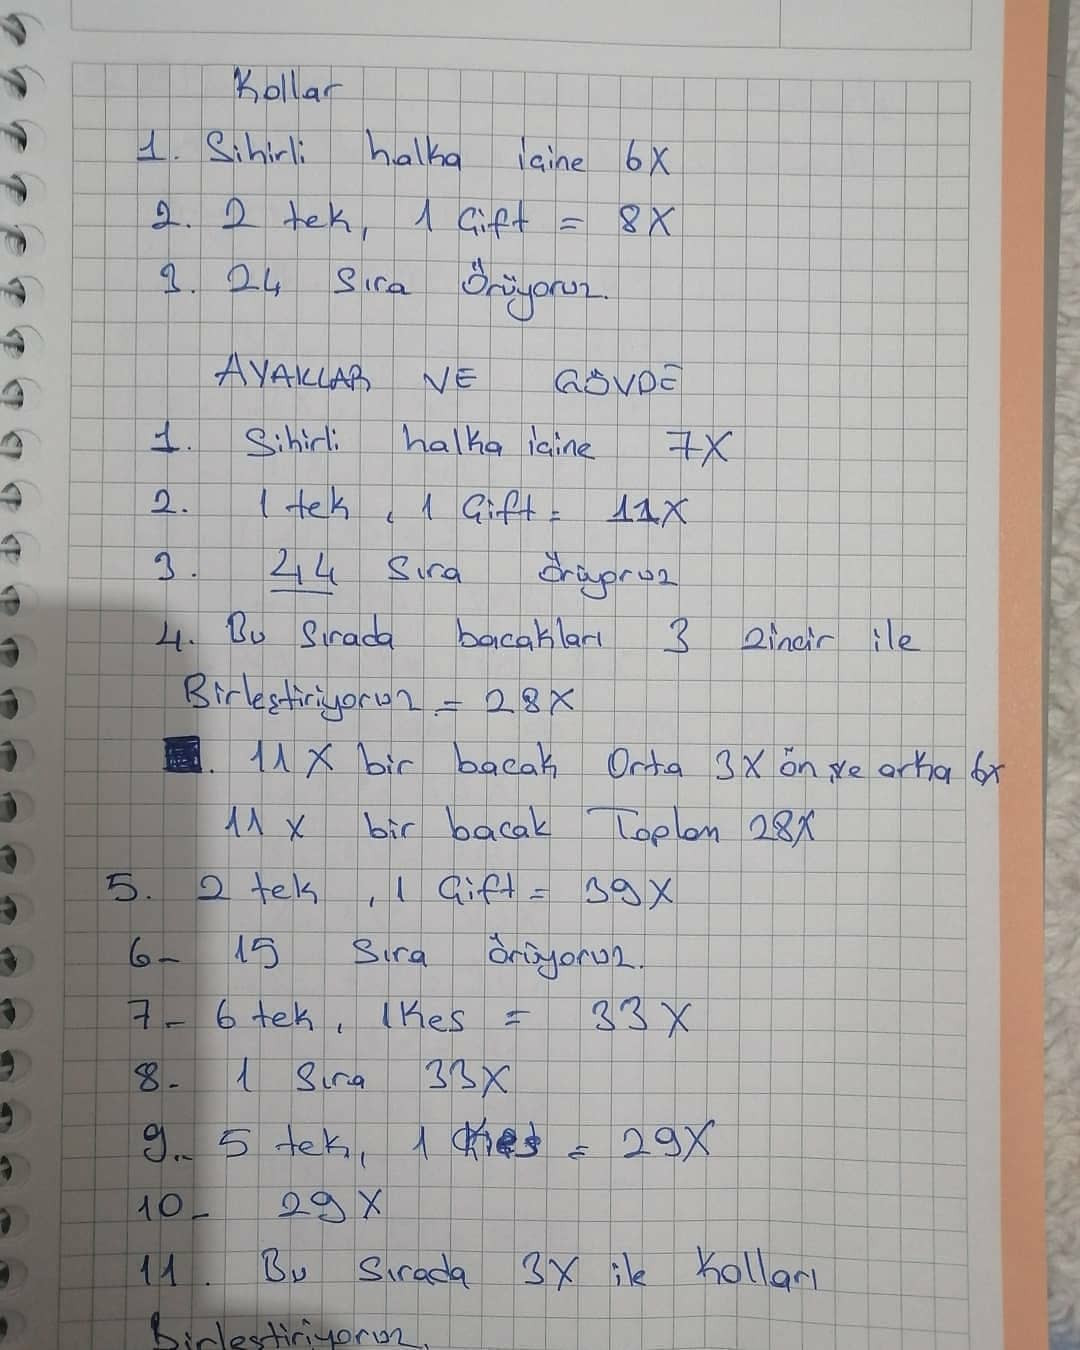 Kollar
1. Sihirli halka içine 6X
2. 2 tek, 1 Çift = 8X
3. 24 Sıra Örüyoruz.
AYAKLAR VE GÖVDE
1. Sihirli halka içine 7X
2. 1 tek, 1 Çift = 11X
3. 24 Sıra örüyoruz
4. Bu Sırada bacakları 3 zincir ile
Birleştiriyoruz = 28X
11X bir bacak Orta 3X ön ve arka 6x
11x bir bacak Toplam 28X
5. 2 tek, 1 Çift = 39X
6- 15 Sıra örüyoruz.
7- 6 tek, 1 Kes = 33X
8- 1 Sıra 33X
9.. 5 tek, 1 Kes = 29X
10- 29X
11. Bu Sırada 3X ile Kolları
Birleştiriyoruz.